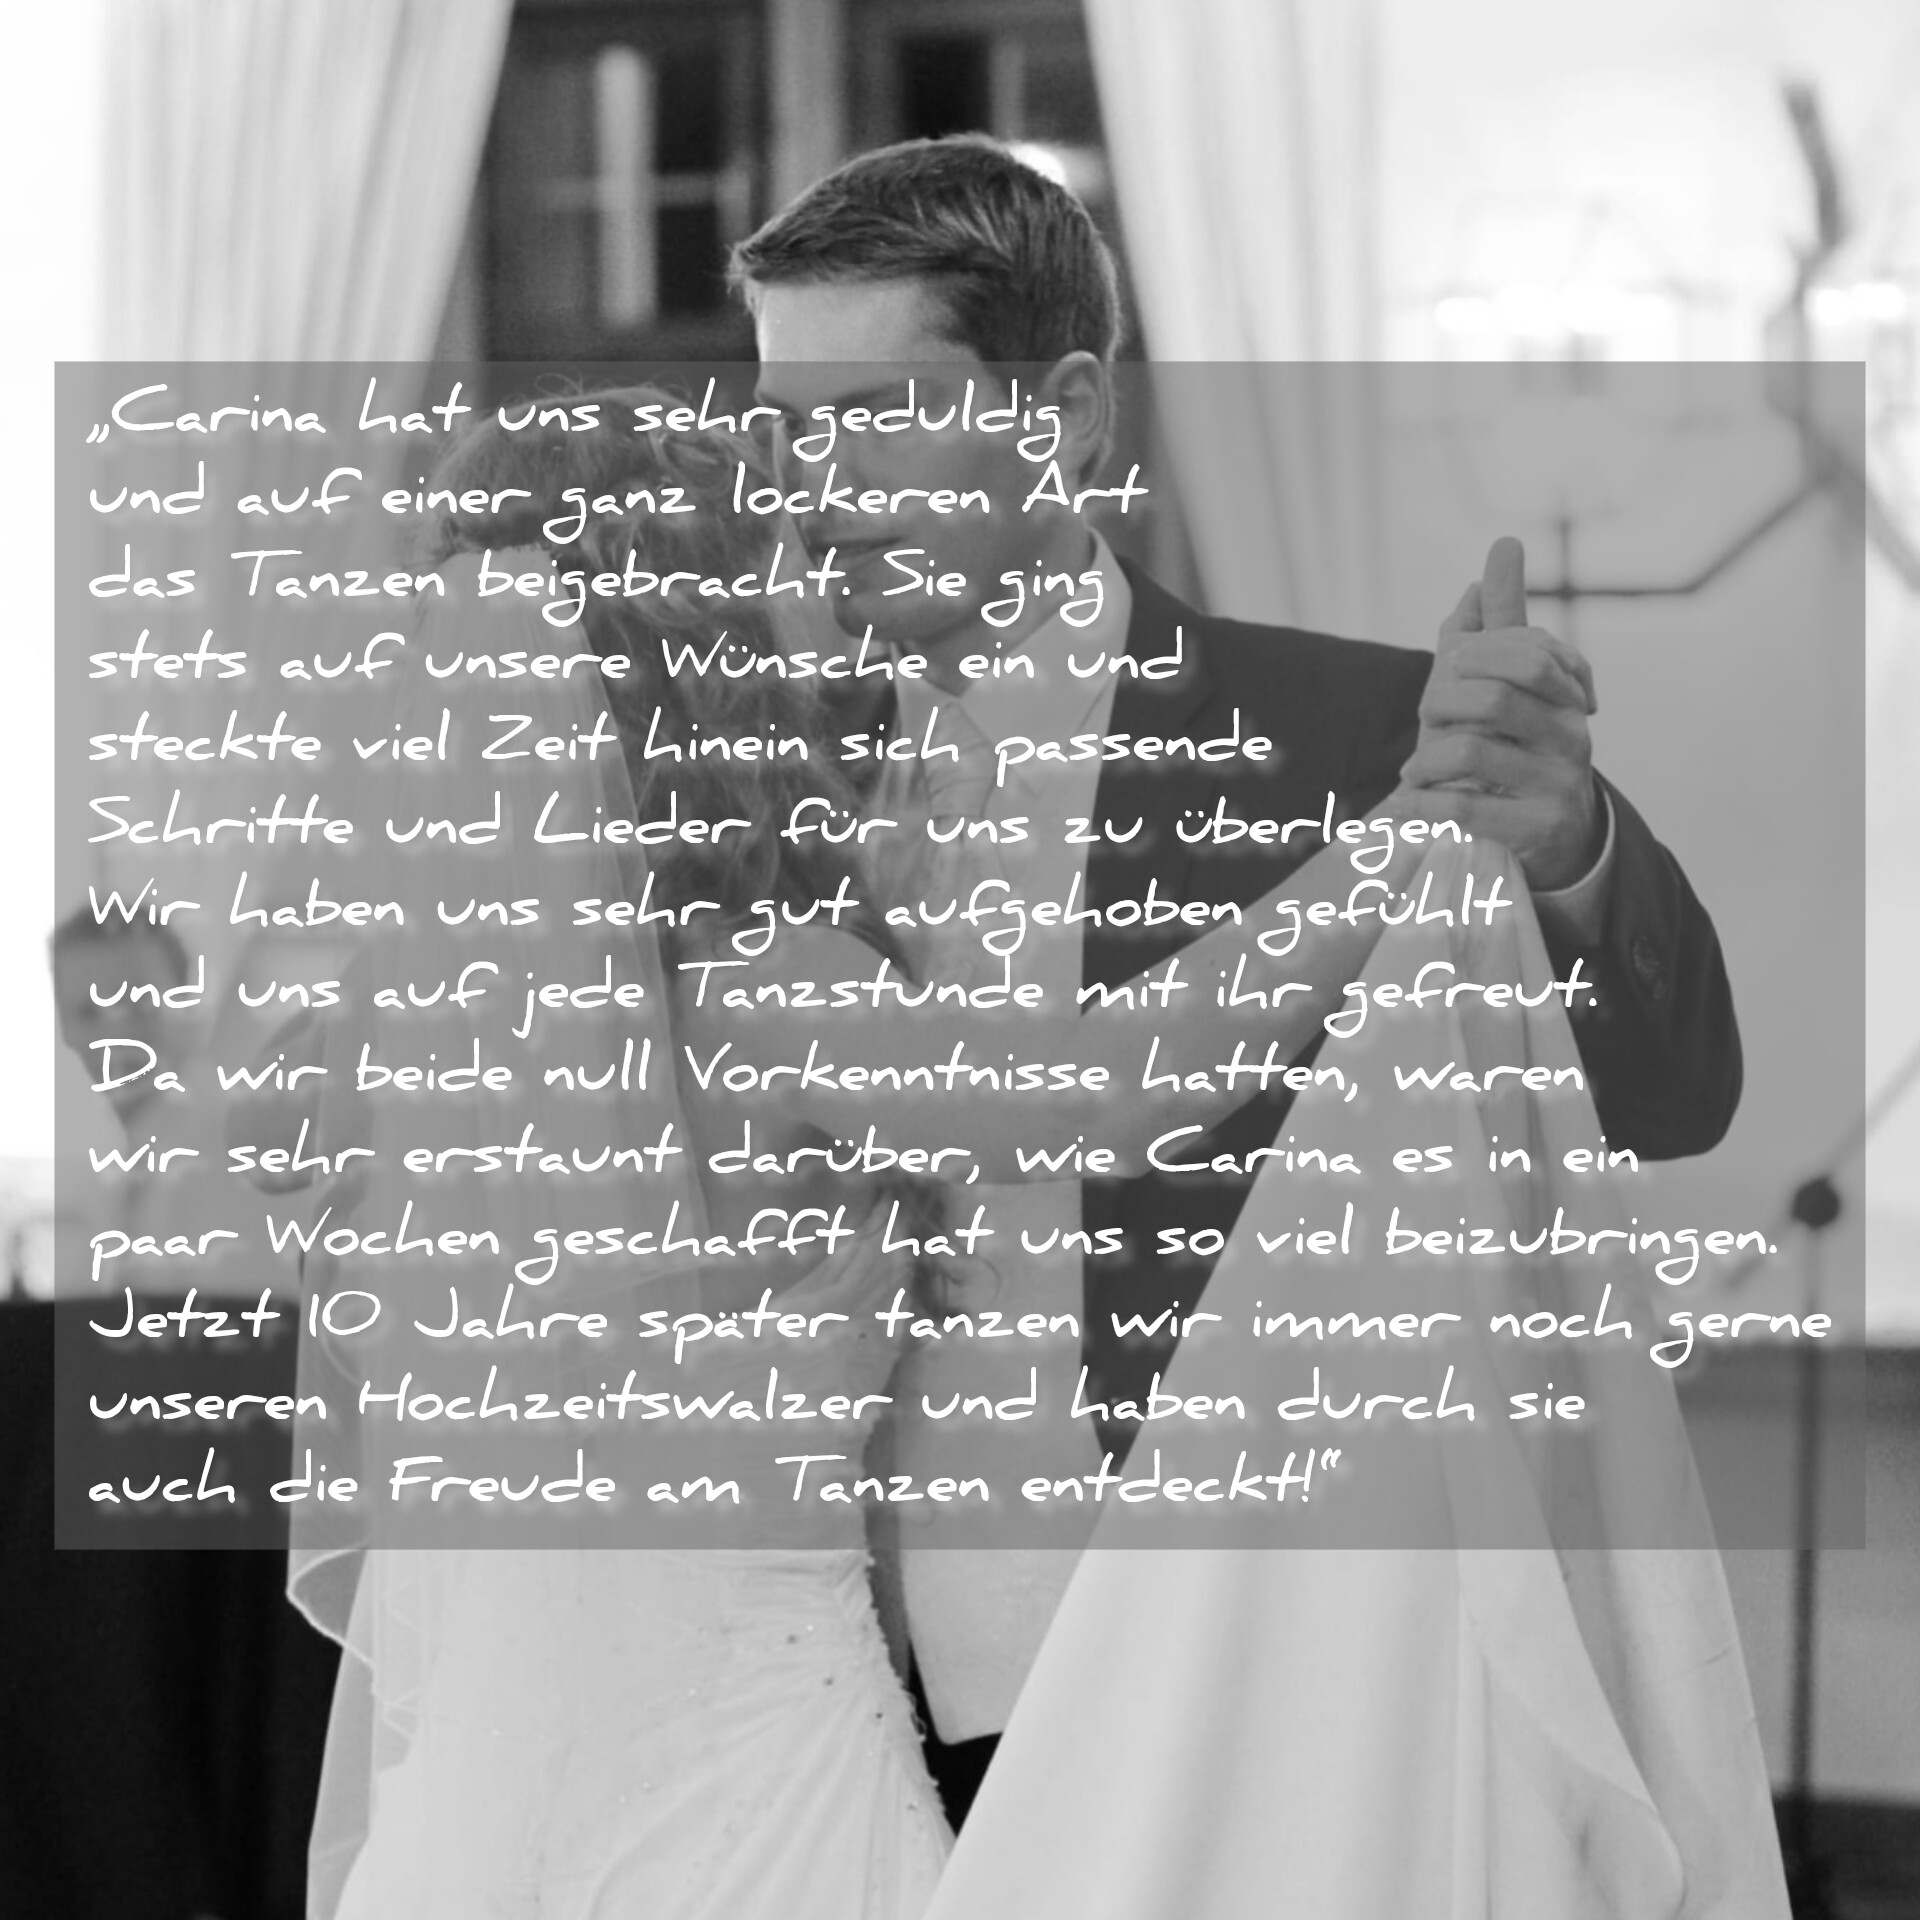 „Carina hat uns sehr geduldig
und auf einer ganz lockeren Art
das Tanzen beigebracht. Sie ging
stets auf unsere Wünsche ein und
steckte viel Zeit hinein sich passende
Schritte und Lieder für uns zu überlegen.
Wir haben uns sehr gut aufgehoben gefühlt
und uns auf jede Tanzstunde mit ihr gefreut.
Da wir beide null Vorkenntnisse hatten, waren
wir sehr erstaunt darüber, wie Carina es in ein
paar Wochen geschafft hat uns so viel beizubringen.
Jetzt 10 Jahre später tanzen wir immer noch gerne
unseren Hochzeitswalzer und haben durch sie
auch die Freude am Tanzen entdeckt!“